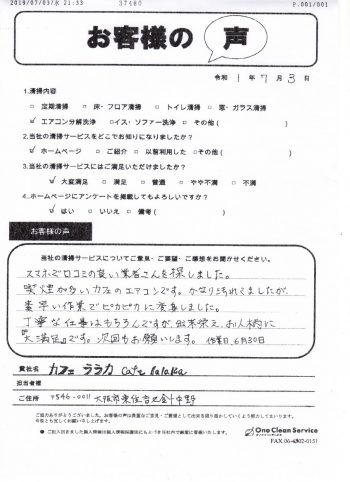 2019/07/03/水 21:33 37480 P.001/001
お客様の声
令和 1 年 7 月 3 日
1.清掃内容
□ 定期清掃 □ 床・フロア清掃 □ トイレ清掃 □ 窓・ガラス清掃
☑ エアコン分解洗浄 □イス・ソファー洗浄 □ その他 ( )
2.当社の清掃サービスをどこでお知りになりましたか?
☑ ホームページ □ ご紹介 □ 以前利用した □その他 ( )
3.当社の清掃サービスにはご満足いただけましたか?
☑ 大変満足 □ 満足 □ 普通 □ やや不満 □ 不満
4.ホームページにアンケートを掲載してもよろしいですか?
☑ はい □ いいえ □ 備考 ( )
お客様の声
当社の清掃サービスについてご意見・ご要望・ご感想をお聞かせください。
スマホで口コミの良い業者さんを探しました。
喫煙が多いカフェのエアコンです。かなり汚れてましたが、
素早い作業でピカピカに変身しました。
丁寧な仕事はもちろんですが、出来栄え、お人柄に
『大満足』です。次回もお願いします。 作業日、6月30日
貴社名 カフェ ララカ Cafe lalaka
担当者様
ご住所 〒546-0011 大阪市東住吉区
ご協力ありがとうございました。お客様の声は貴重なご意見・ご要望として
今後とも宜しくお願い申し上げます。
Ono Clean Service
FAX.06-6302-0151